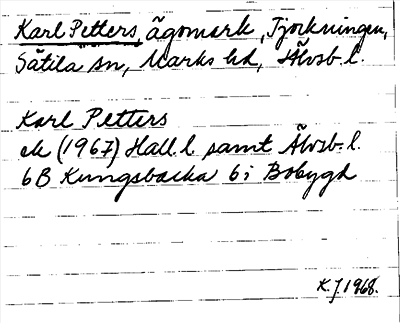 Karl Petters, ägomark, Tjockningen,
Sätila sn, Marks hd, Älvsb. l.
Karl Petters
ek (1967) Hall. l samt Älvsb. l.
6B Kungsbacka 6i Bobygd
K. J 1968.